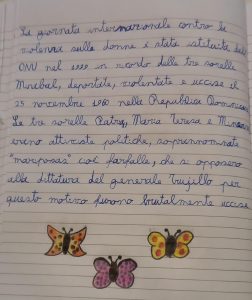 La giornata internazionale contro la
violenza sulle donne è stata istituita dall'
ONU nel 1999 in ricordo delle tre sorelle
Mirabal, deportate, violentate e uccise il
25 novembre 1960 nella Repubblica Dominicana
Le tre sorelle Patria, Maria Teresa e Minerva
erano attiviste politiche, soprannominate
"mariposas" cioè farfalle, che si opposero
alla dittatura del generale Trujillo per
questo motivo furono brutalmente uccise